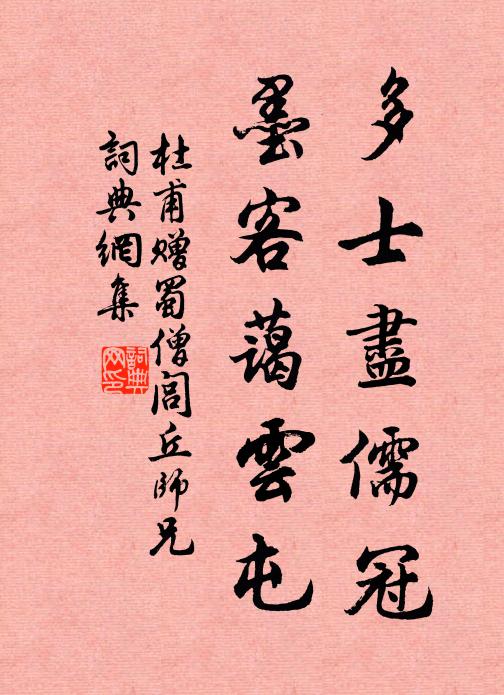 多士盡儒冠
墨客藹雲屯
杜甫贈蜀僧閭丘師兄
詞典網集
詞典网印